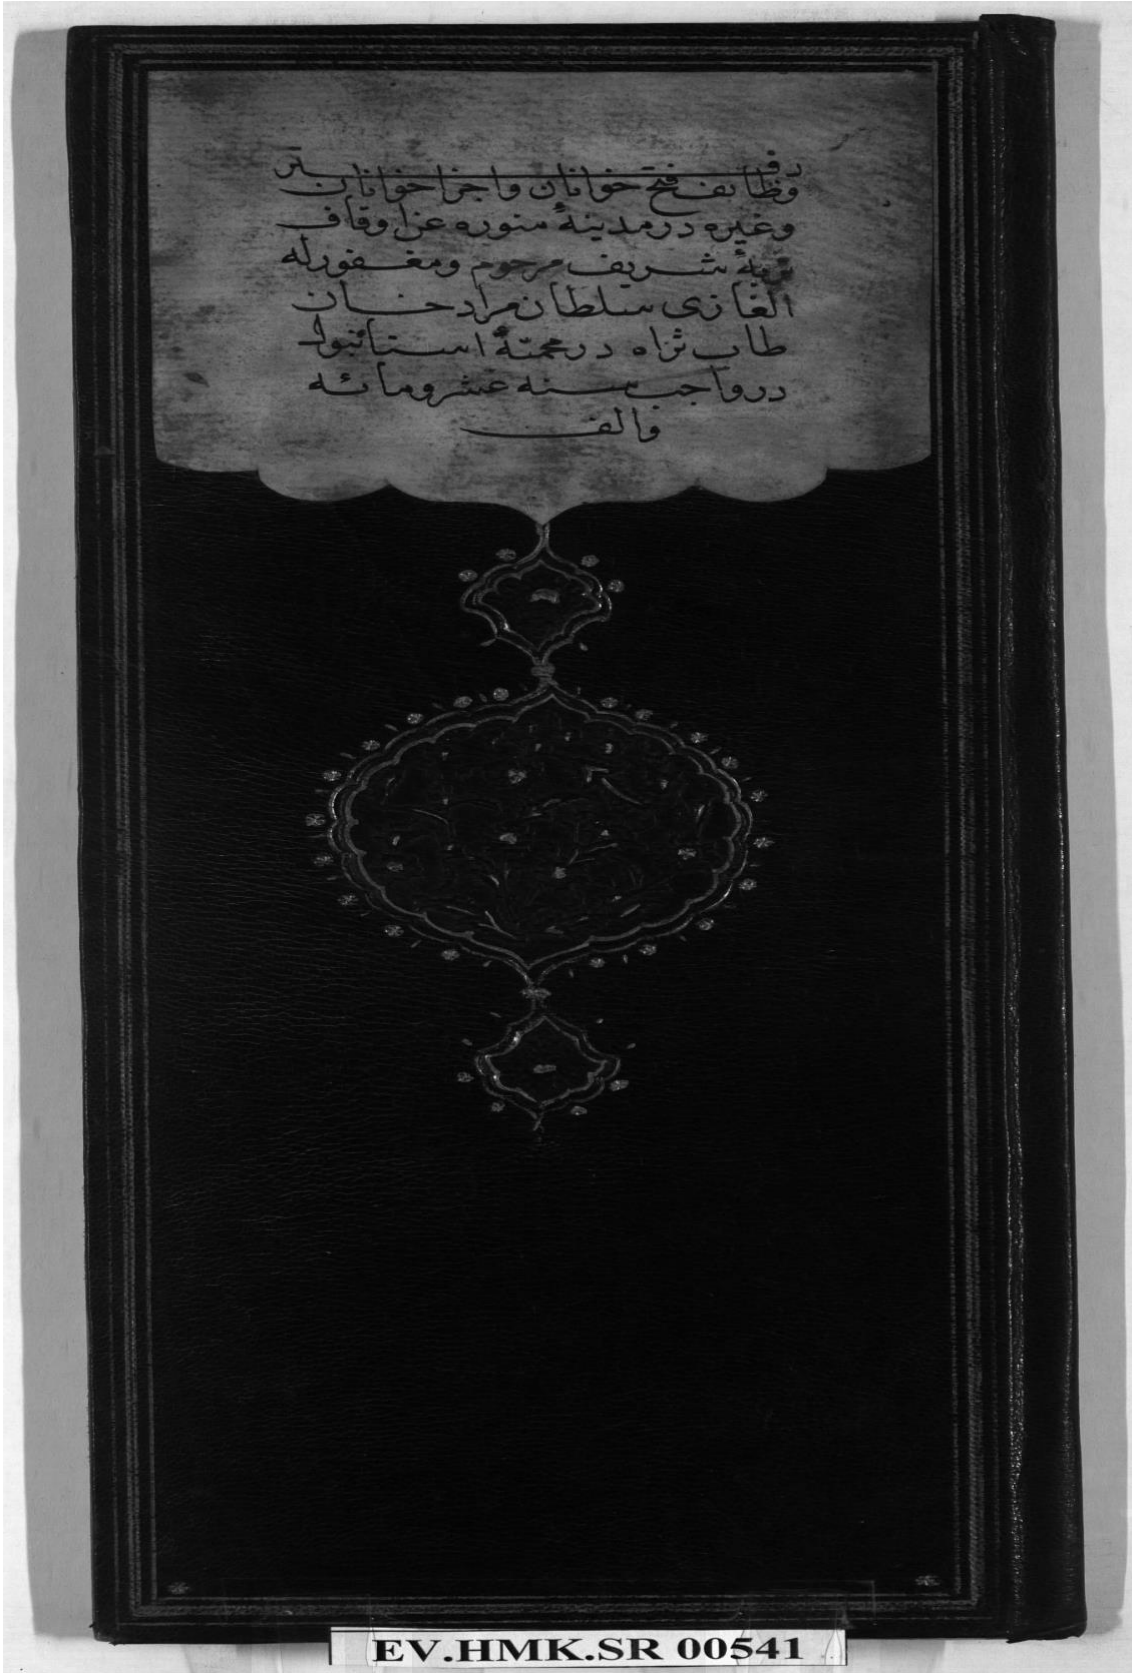 دفتر
وظائف فتح خوانان واجزا خوانان
وغيره در مدينۀ منوره عن اوقاف
تربۀ شريف مرحوم ومغفورله
الغازى سلطان مراد خان
طاب ثراه در محميۀ استانبول
در واجب سنه عشر ومائه
والف
EV.HMK.SR 00541